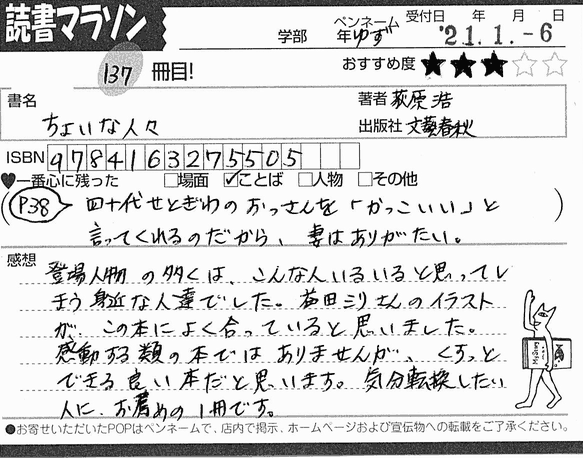 読書マラソン
学部 年 ペンネーム ゆず 受付日 '21.1.-6 年 月 日
137 冊目! おすすめ度 ★★★☆☆
書名 著者 萩原 浩
ちょいな人々 出版社 文藝春秋
ISBN 9784163275505
♥一番心に残った □場面 ☑ことば □人物 □その他
(P38 四十代せとぎわのおっさんを「かっこいい」と
言ってくれるのだから、妻はありがたい。)
感想
登場人物の多くは、こんな人いるいると思ってし
まう身近な人達でした。益田ミリさんのイラスト
が、この本によく合っていると思いました。
感動する類の本ではありませんが、くすっと
できる良い本だと思います。気分転換したい
人に、お薦めの1冊です。
●お寄せいただいたPOPはペンネームで、店内で掲示、ホームページおよび宣伝物への転載をご了承ください。